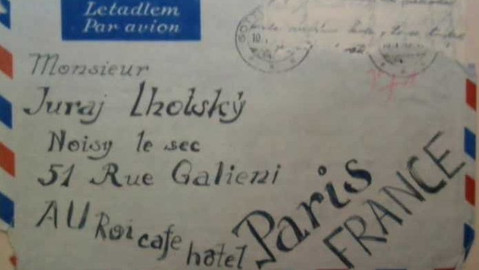 Letadlem
Par avion
Monsieur
Juraj Lholský
Noisy le sec
51 Rue Galieni
AU Roi cafe hotel
Paris
FRANCE